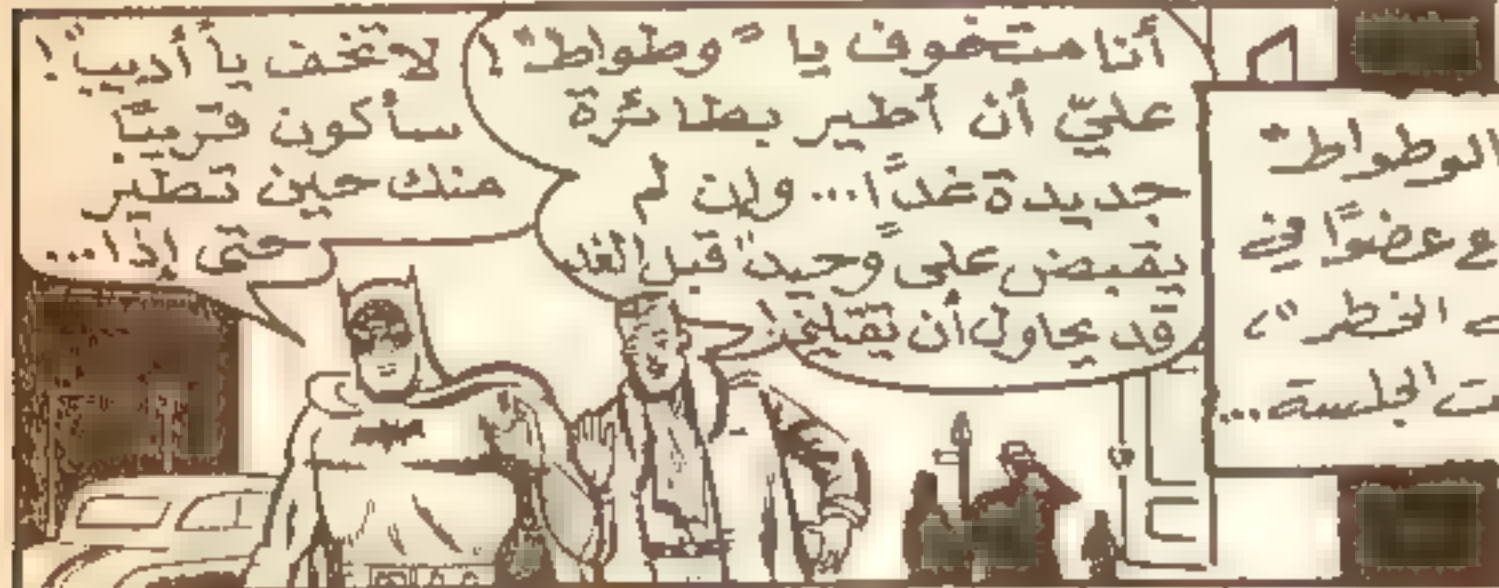 الوطواط"
ع عضوًا في
الخطر"،
ت الجلسة...
أنا متخوف يا "وطواط"!
عليّ أن أطير بطائرة
جديدة غدًا... وإن لم
يقبض على "وحيد" قبل الغد
قد يحاول أن يقتلني!
لا تخف يا "أديب"!
سأكون قريبًا
منك حين تطير
حتى إذا...